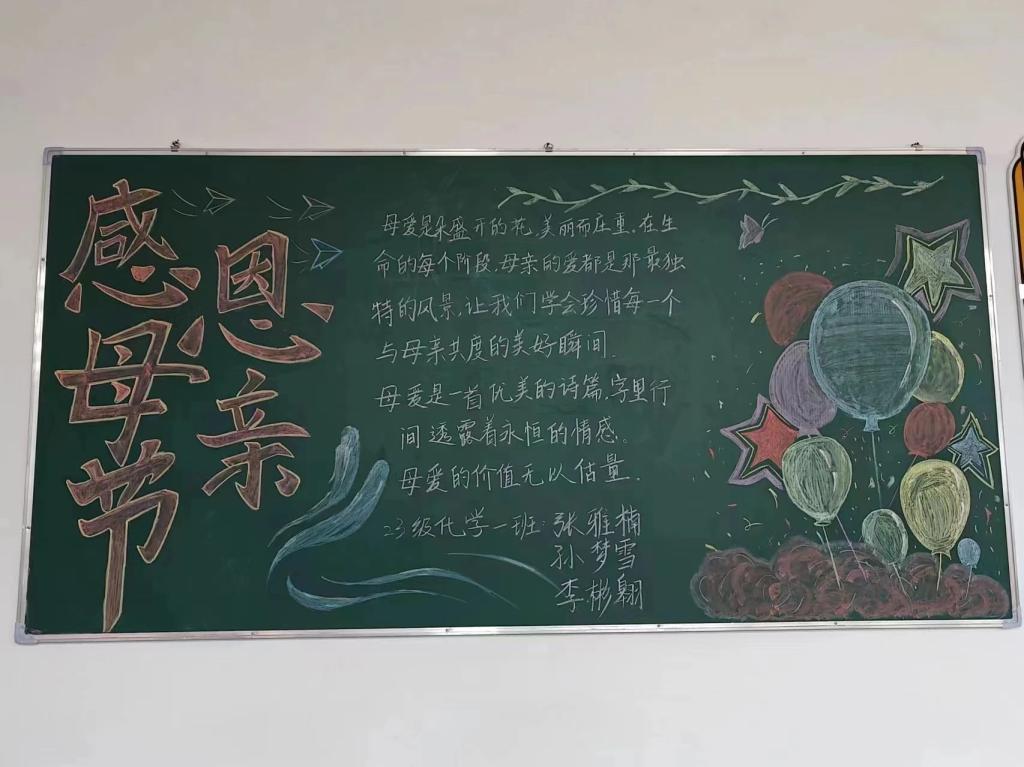 感恩
母亲节
母爱是朵盛开的花,美丽而庄重.在生
命的每个阶段,母亲的爱都是那最独
特的风景,让我们学会珍惜每一个
与母亲共度的美好瞬间.
母爱是一首优美的诗篇,字里行
间透露着永恒的情感。
母爱的价值无以估量.
23级化学一班:张雅楠
孙梦雪
李彬翱